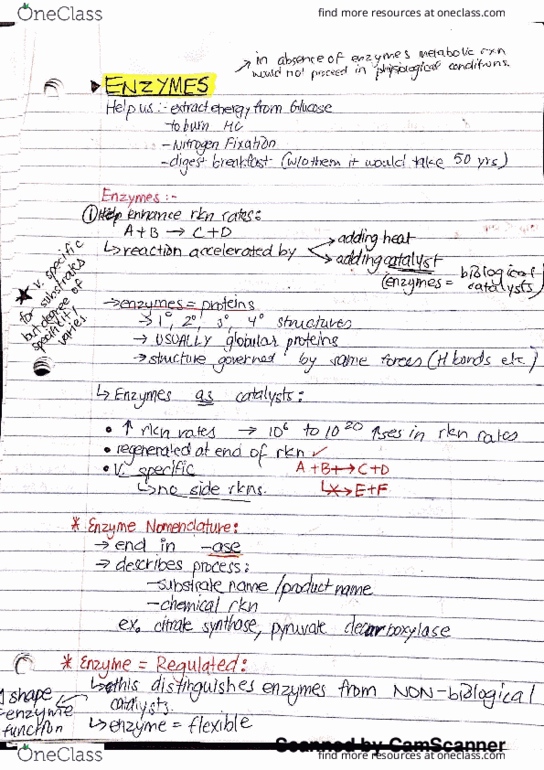 OneClass
find more resources at oneclass.com
→ in absence of enzymes metabolic rxn
would not proceed in physiological conditions.
▸ ENZYMES
Help us :- extract energy from Glucose
- to burn HC
- Nitrogen Fixation
- digest breakfast (w/o them it would take 50 yrs)
Enzymes :-
① Help enhance rkn rates:
A + B → C + D
↳ reaction accelerated by → adding heat
→ adding catalyst
(enzymes = biological catalysts)
★ v. specific
for substrates
but degree of
specificity
varies
→ enzymes = proteins
→ 1°, 2°, 3°, 4° structures
→ USUALLY globular proteins
→ structure governed by same forces (H bonds etc.)
↳ Enzymes as catalysts:
• ↑ rkn rates → 10⁶ to 10²⁰ ↑ses in rkn rates
• regenerated at end of rkn ✓
• V. specific
↳ no side rkns.
A + B → C + D
↳ X → E + F
* Enzyme Nomenclature:
→ end in -ase
→ describes process:
- substrate name / product name
- chemical rkn
ex. citrate synthase, pyruvate decarboxylase
* Enzyme = Regulated:
↳ this distinguishes enzymes from NON-biological
catalysts.
↳ enzyme = flexible
shape
= enzyme
function
Scanned by CamScanner
OneClass
find more resources at oneclass.com